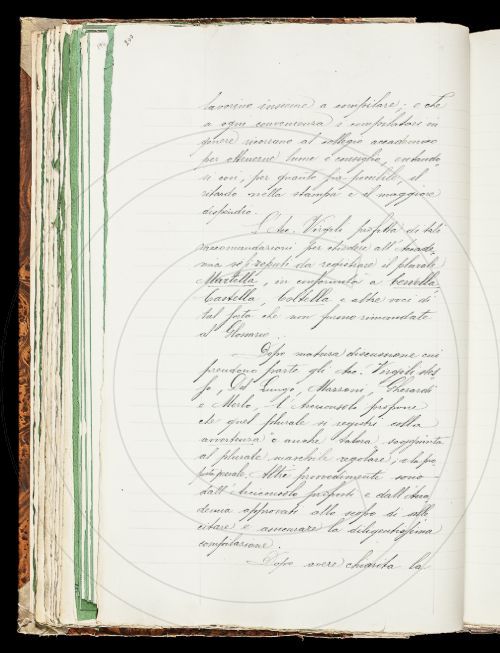 lavorino insieme a compilare; e che
a ogni occorrenza i compilatori in
genere ricorrano al collegio accademico
per ottenerne lume e consiglio, evitando-
si così, per quanto sia possibile, il
ritardo nella stampa e il maggiore
dispendio.
L'Acc. Virgili profitta di tali
raccomandazioni per chiedere all'Accade-
mia se reputi da registrare il plurale
Martella, in conformità a Cervella,
Castella, Coltella e altre voci di
tal fatta che non furono rimandate
al Glossario.
Dopo matura discussione cui
prendono parte gli Acc. Virgili stes-
so, Del Lungo, Mazzoni, Gherardi
e Merlo, l'Arciconsolo propone
che quel plurale si registri colla
avvertenza è anche talora soggiunta
al plurale maschile regolare,
Altri provvedimenti sono
dall'Arciconsolo proposti e dall'Acca-
demia approvati allo scopo di solle-
citare e assicurare la diligentissima
compilazione.
Dopo avere chiarita la